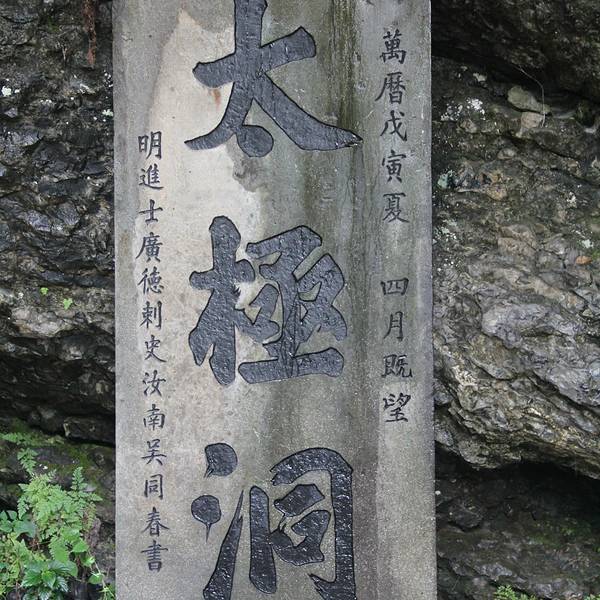 萬曆戊寅夏 四月既望
太極洞
明進士廣德刺史汝南吴同春書